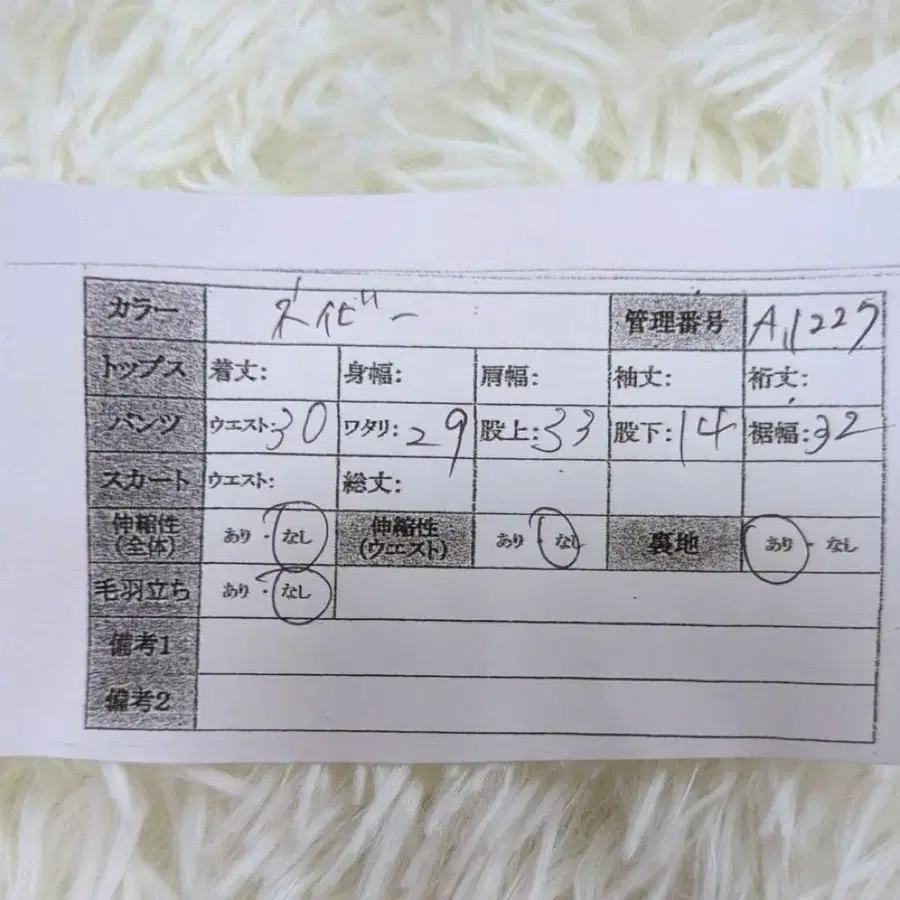 カラー ネイビー 管理番号 A11227
トップス 着丈: 身幅: 肩幅: 袖丈: 裄丈:
パンツ ウエスト:30 ワタリ:29 股上:33 股下:14 裾幅:32
スカート ウエスト: 総丈:
伸縮性(全体) あり・なし 伸縮性(ウエスト) あり・なし 裏地 あり・なし
毛羽立ち あり・なし
備考1
備考2